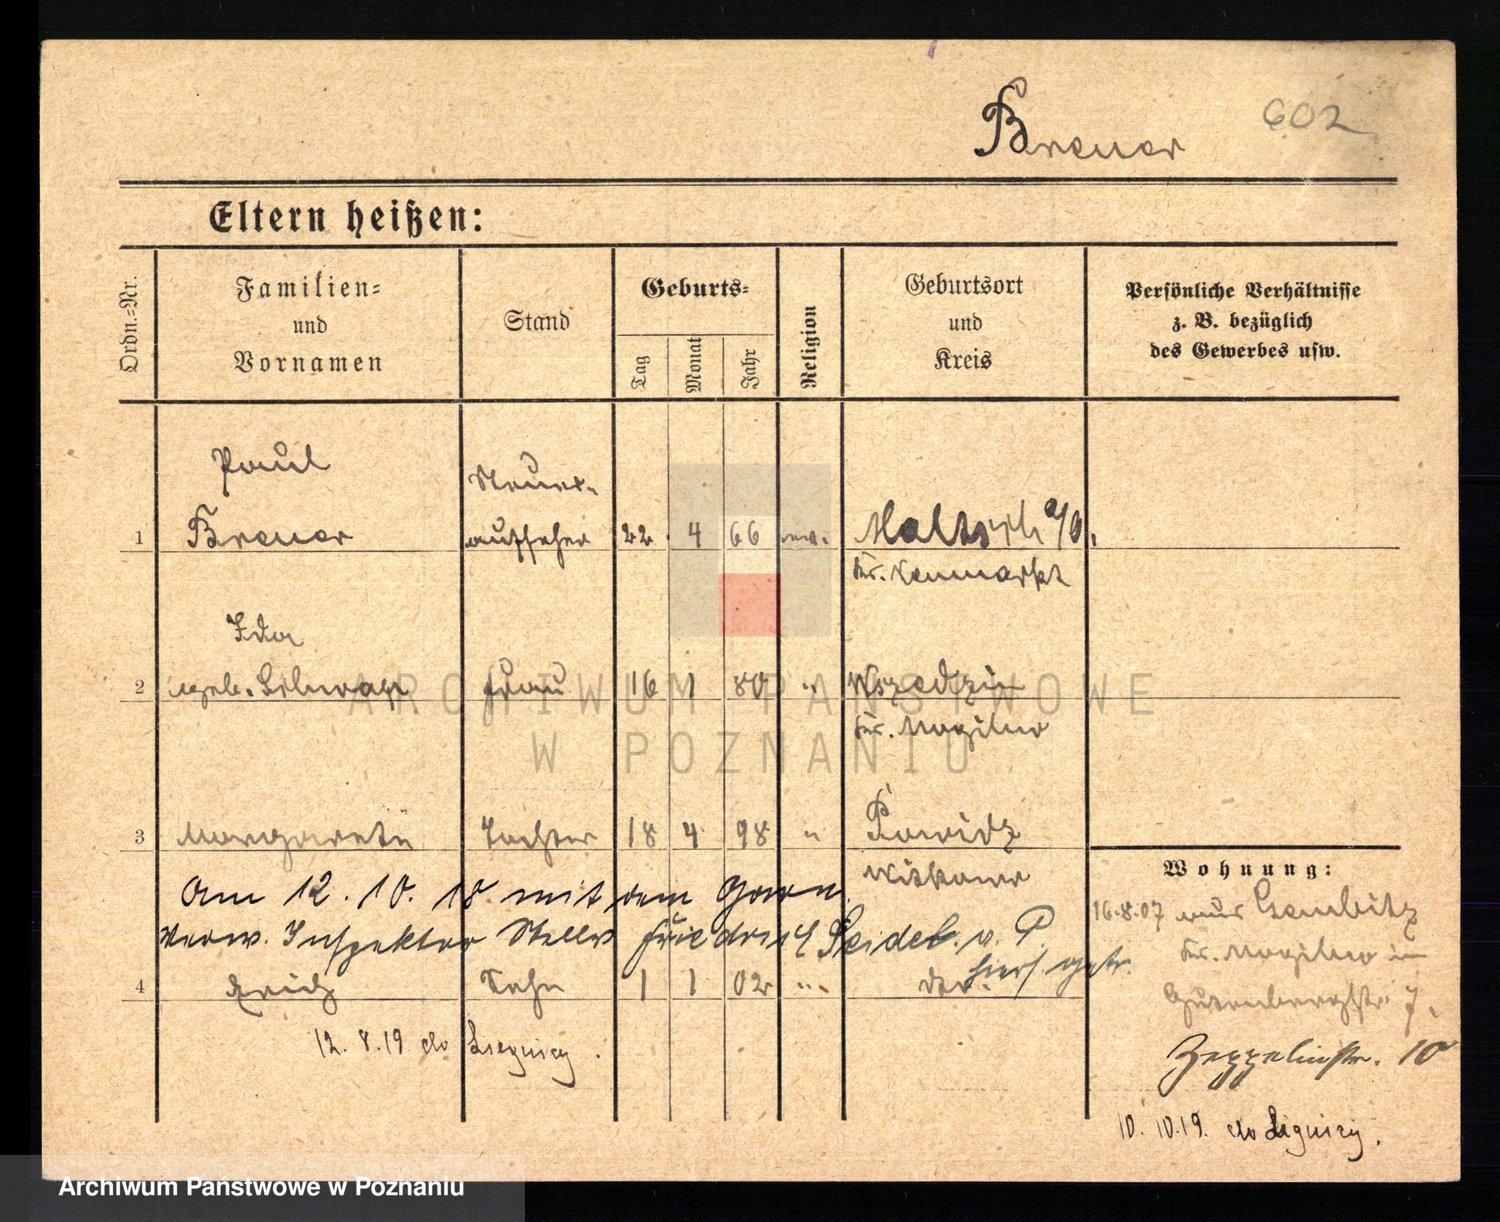 Breuer
602
Eltern heißen:
Ordn.-Nr.
Familien-
und
Vornamen
Stand
Geburts-
Tag
Monat
Jahr
Religion
Geburtsort
und
Kreis
Persönliche Verhältnisse
z. B. bezüglich
des Gewerbes usw.
Paul
Steuer-
1 Breuer aufseher 22 4 66 Maltsch a/O.
Kr. Neumarkt
Ida
2 geb. Frau 16 1 80 " Wszedzin
Kr. Mogilno
3 Margarete Tochter 18 4 98 " Powidz
Witkowo
Wohnung:
Am 12. 10. 18 mit dem
16.8.07 aus Gembitz
verw. Inspektor Friedrich Seidel
hier getr.
Kr. Mogilno in
4 Erich Sohn 1 1 02 "
Gutenbergstr. 7.
12. 8. 19 do Liegnicy.
Zeppelinstr. 10
10. 10. 19. do Lignicy.
ARCHIWUM PAŃSTWOWE
W POZNANIU
Archiwum Państwowe w Poznaniu